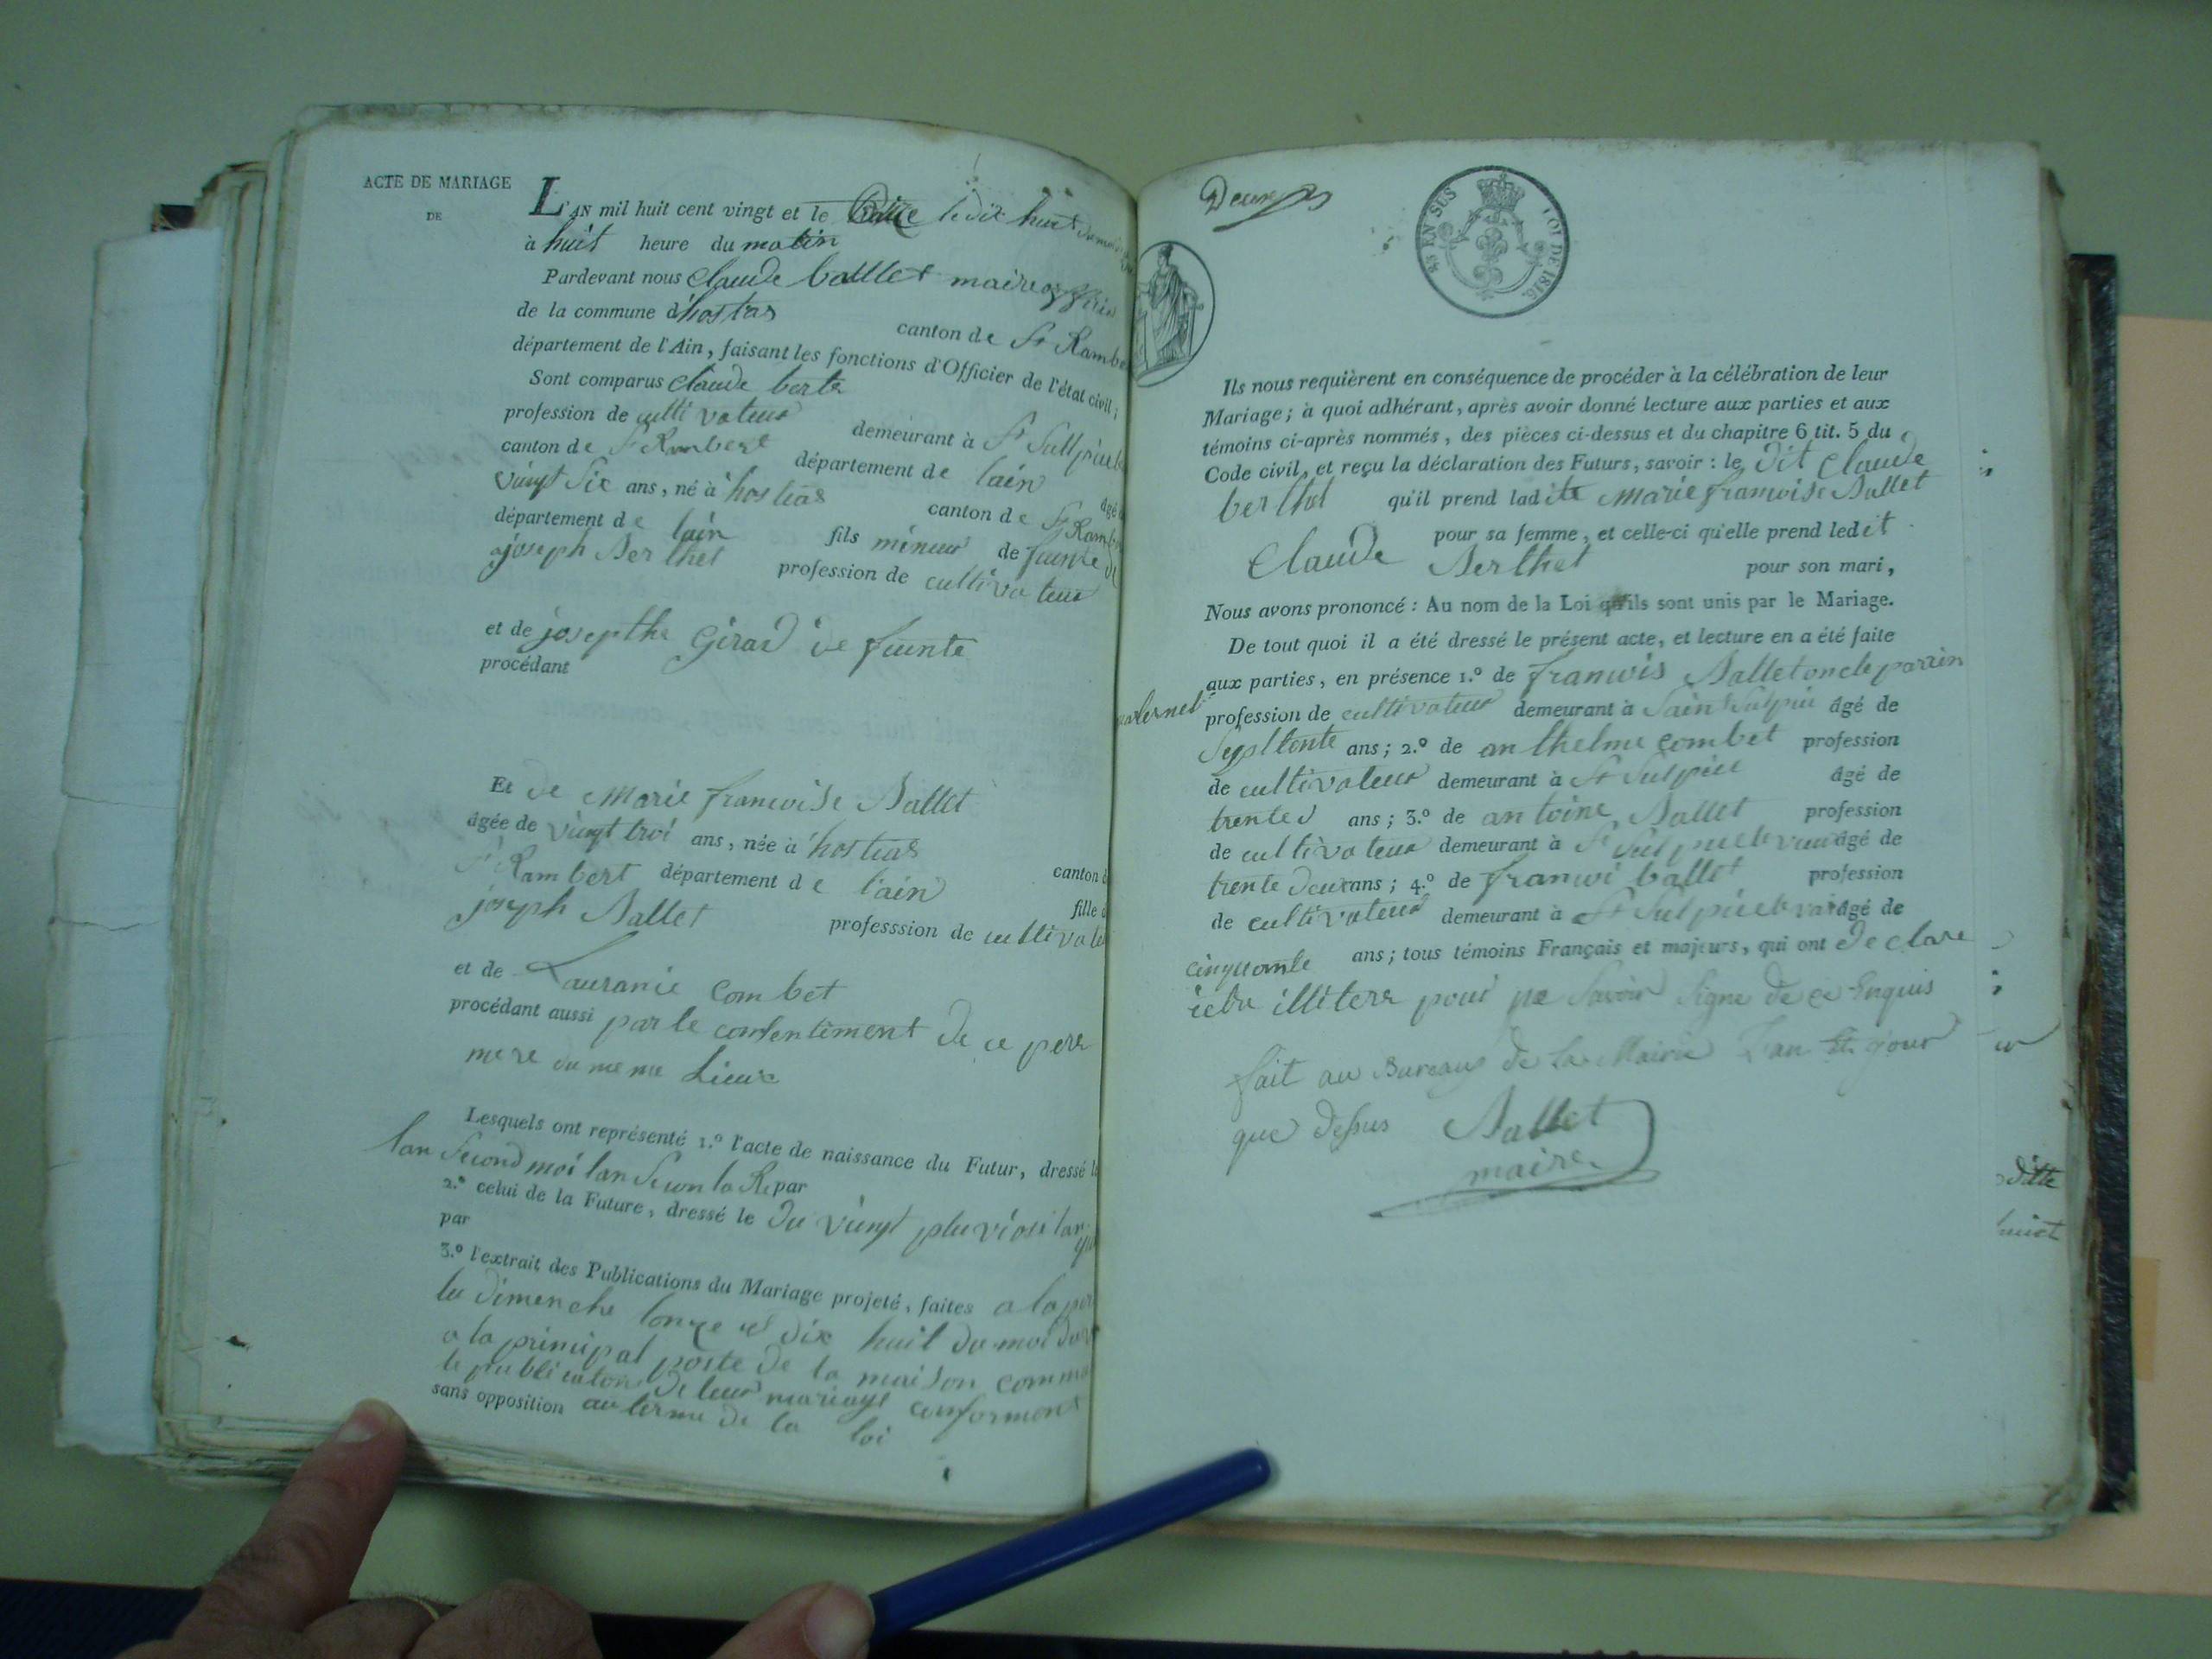 ACTE DE MARIAGE
DE
L'AN mil huit cent vingt et le le dix huit
à huit heure du matin
Pardevant nous Claude ballet maire
de la commune d'hostias canton de St Rambe
département de l'Ain, faisant les fonctions d'Officier de l'état civil;
Sont comparus Claude berte
profession de cultivateur demeurant à St Sulpice
canton de St Rambert département de lain âgé
vingt Six ans, né à hostias canton de St Ramb
département de lain fils mineur de funte de
joseph Berthet profession de cultivateur
et de josephte Girad de funte
procédant
Et de Marie francoise Ballet
âgée de vingt troi ans, née à hostias canton d
St Rambert département de l'ain fille d
joseph Ballet professsion de cultivate
et de Lauranie Combet
procédant aussi par le consentiment de ce pere
mere du meme Lieux
Lesquels ont représenté 1.º l'acte de naissance du Futur, dressé l
lan Second moi lan Secon la Re par
2.º celui de la Future, dressé le du vingt pluviose lan
par
3.º l'extrait des Publications du Mariage projeté, faites a la
lu dimenche lonze et dix huit du moi
a la principal porte de la maison comm
le publicaton de leur mariage conforment
sans opposition au terme de la loi
Deux
25 EN SUS
LOI DE 1816.
Ils nous requièrent en conséquence de procéder à la célébration de leur
Mariage; à quoi adhérant, après avoir donné lecture aux parties et aux
témoins ci-après nommés, des pièces ci-dessus et du chapitre 6 tit. 5 du
Code civil, et reçu la déclaration des Futurs, savoir: le dit Claude
berthet qu'il prend ladite Marie francoise Ballet
pour sa femme, et celle-ci qu'elle prend ledit
Claude Berthet pour son mari,
Nous avons prononcé: Au nom de la Loi qu'ils sont unis par le Mariage.
De tout quoi il a été dressé le présent acte, et lecture en a été faite
aux parties, en présence 1.º de francois Ballet oncle parrin
profession de cultivateur demeurant à Saint Sulpice âgé de
Septtente ans; 2.º de anthelme combet profession
de cultivateur demeurant à St Sulpice âgé de
trente ans; 3.º de antoine Ballet profession
de cultivateur demeurant à St Sulpice âgé de
trente deux ans; 4.º de francoi ballet profession
de cultivateur demeurant à St Sulpice âgé de
cinquante ans; tous témoins Français et majeurs, qui ont declare
iettre illitere pour ne Savoir Signe de ce Enquis
fait au Bureaus de la Mairie L'an et jour
que dessus Ballet
maire